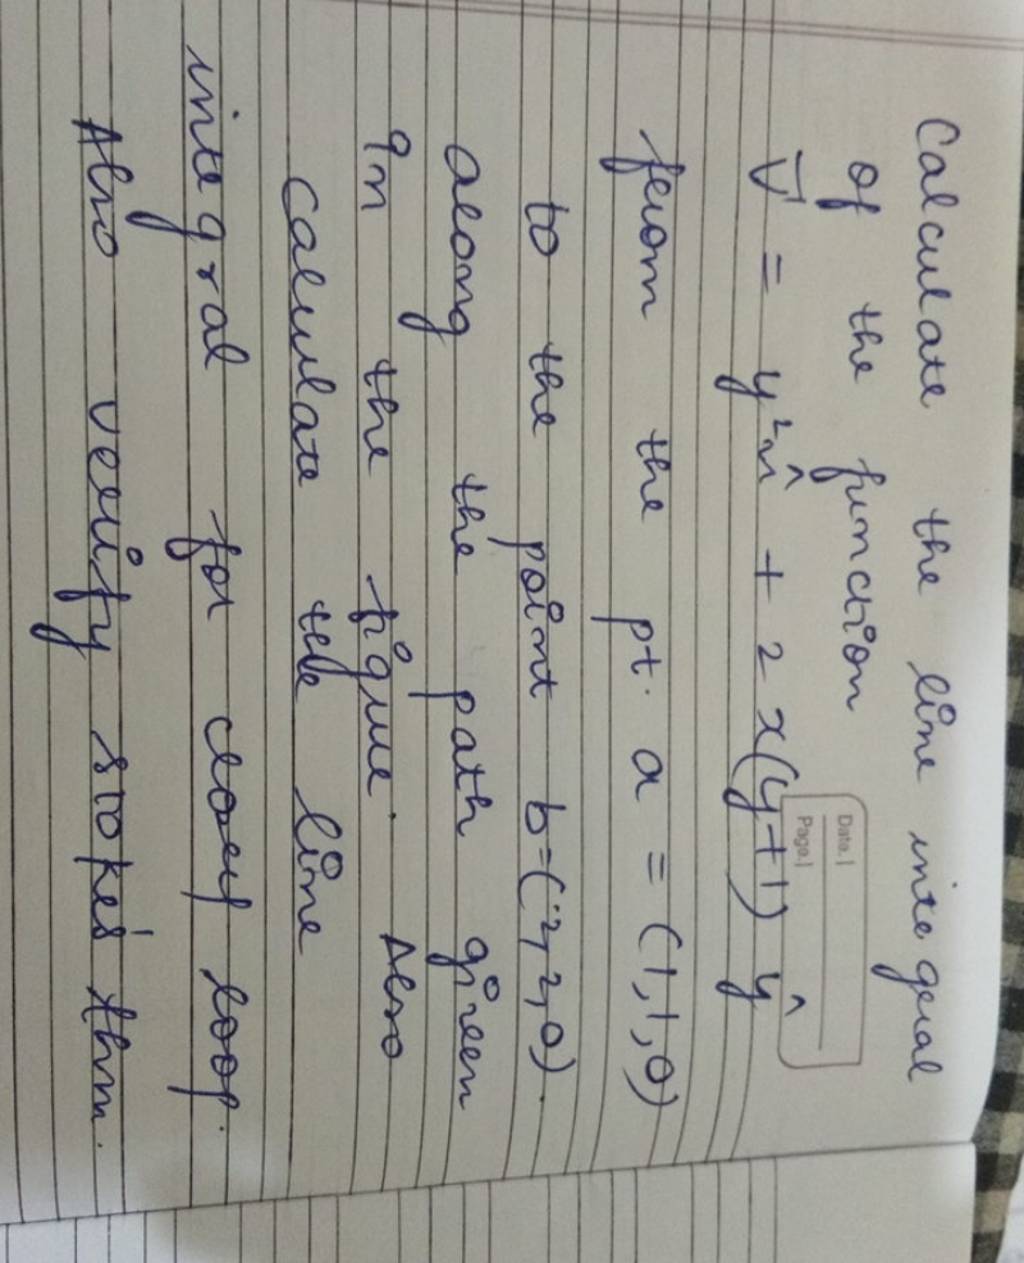 Date.
Page.
Calculate the line integral
of the function
V̄ = y²x̂ + 2x(y+1) ŷ
from the pt. a = (1,1,0)
to the point b=(2,2,0).
along the path given
in the figure. Also
calculate the line
integral for closed loop.
Also verify stoke's thm.